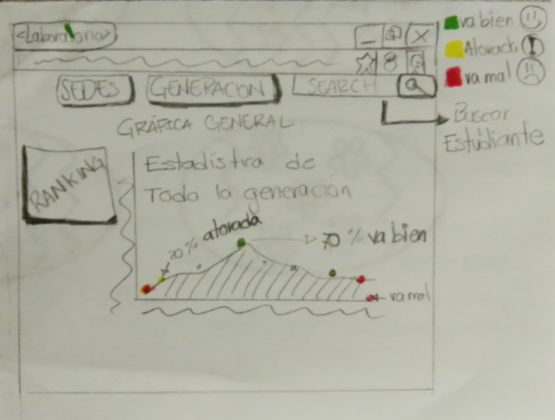 <Laboratoria>
va bien
Atorada !
va mal
SEDES
GENERACION
SEARCH
Buscar
Estudiante
GRÁFICA GENERAL
RANKING
Estadística de
Toda la generacion
20% atorada
70% va bien
va mal